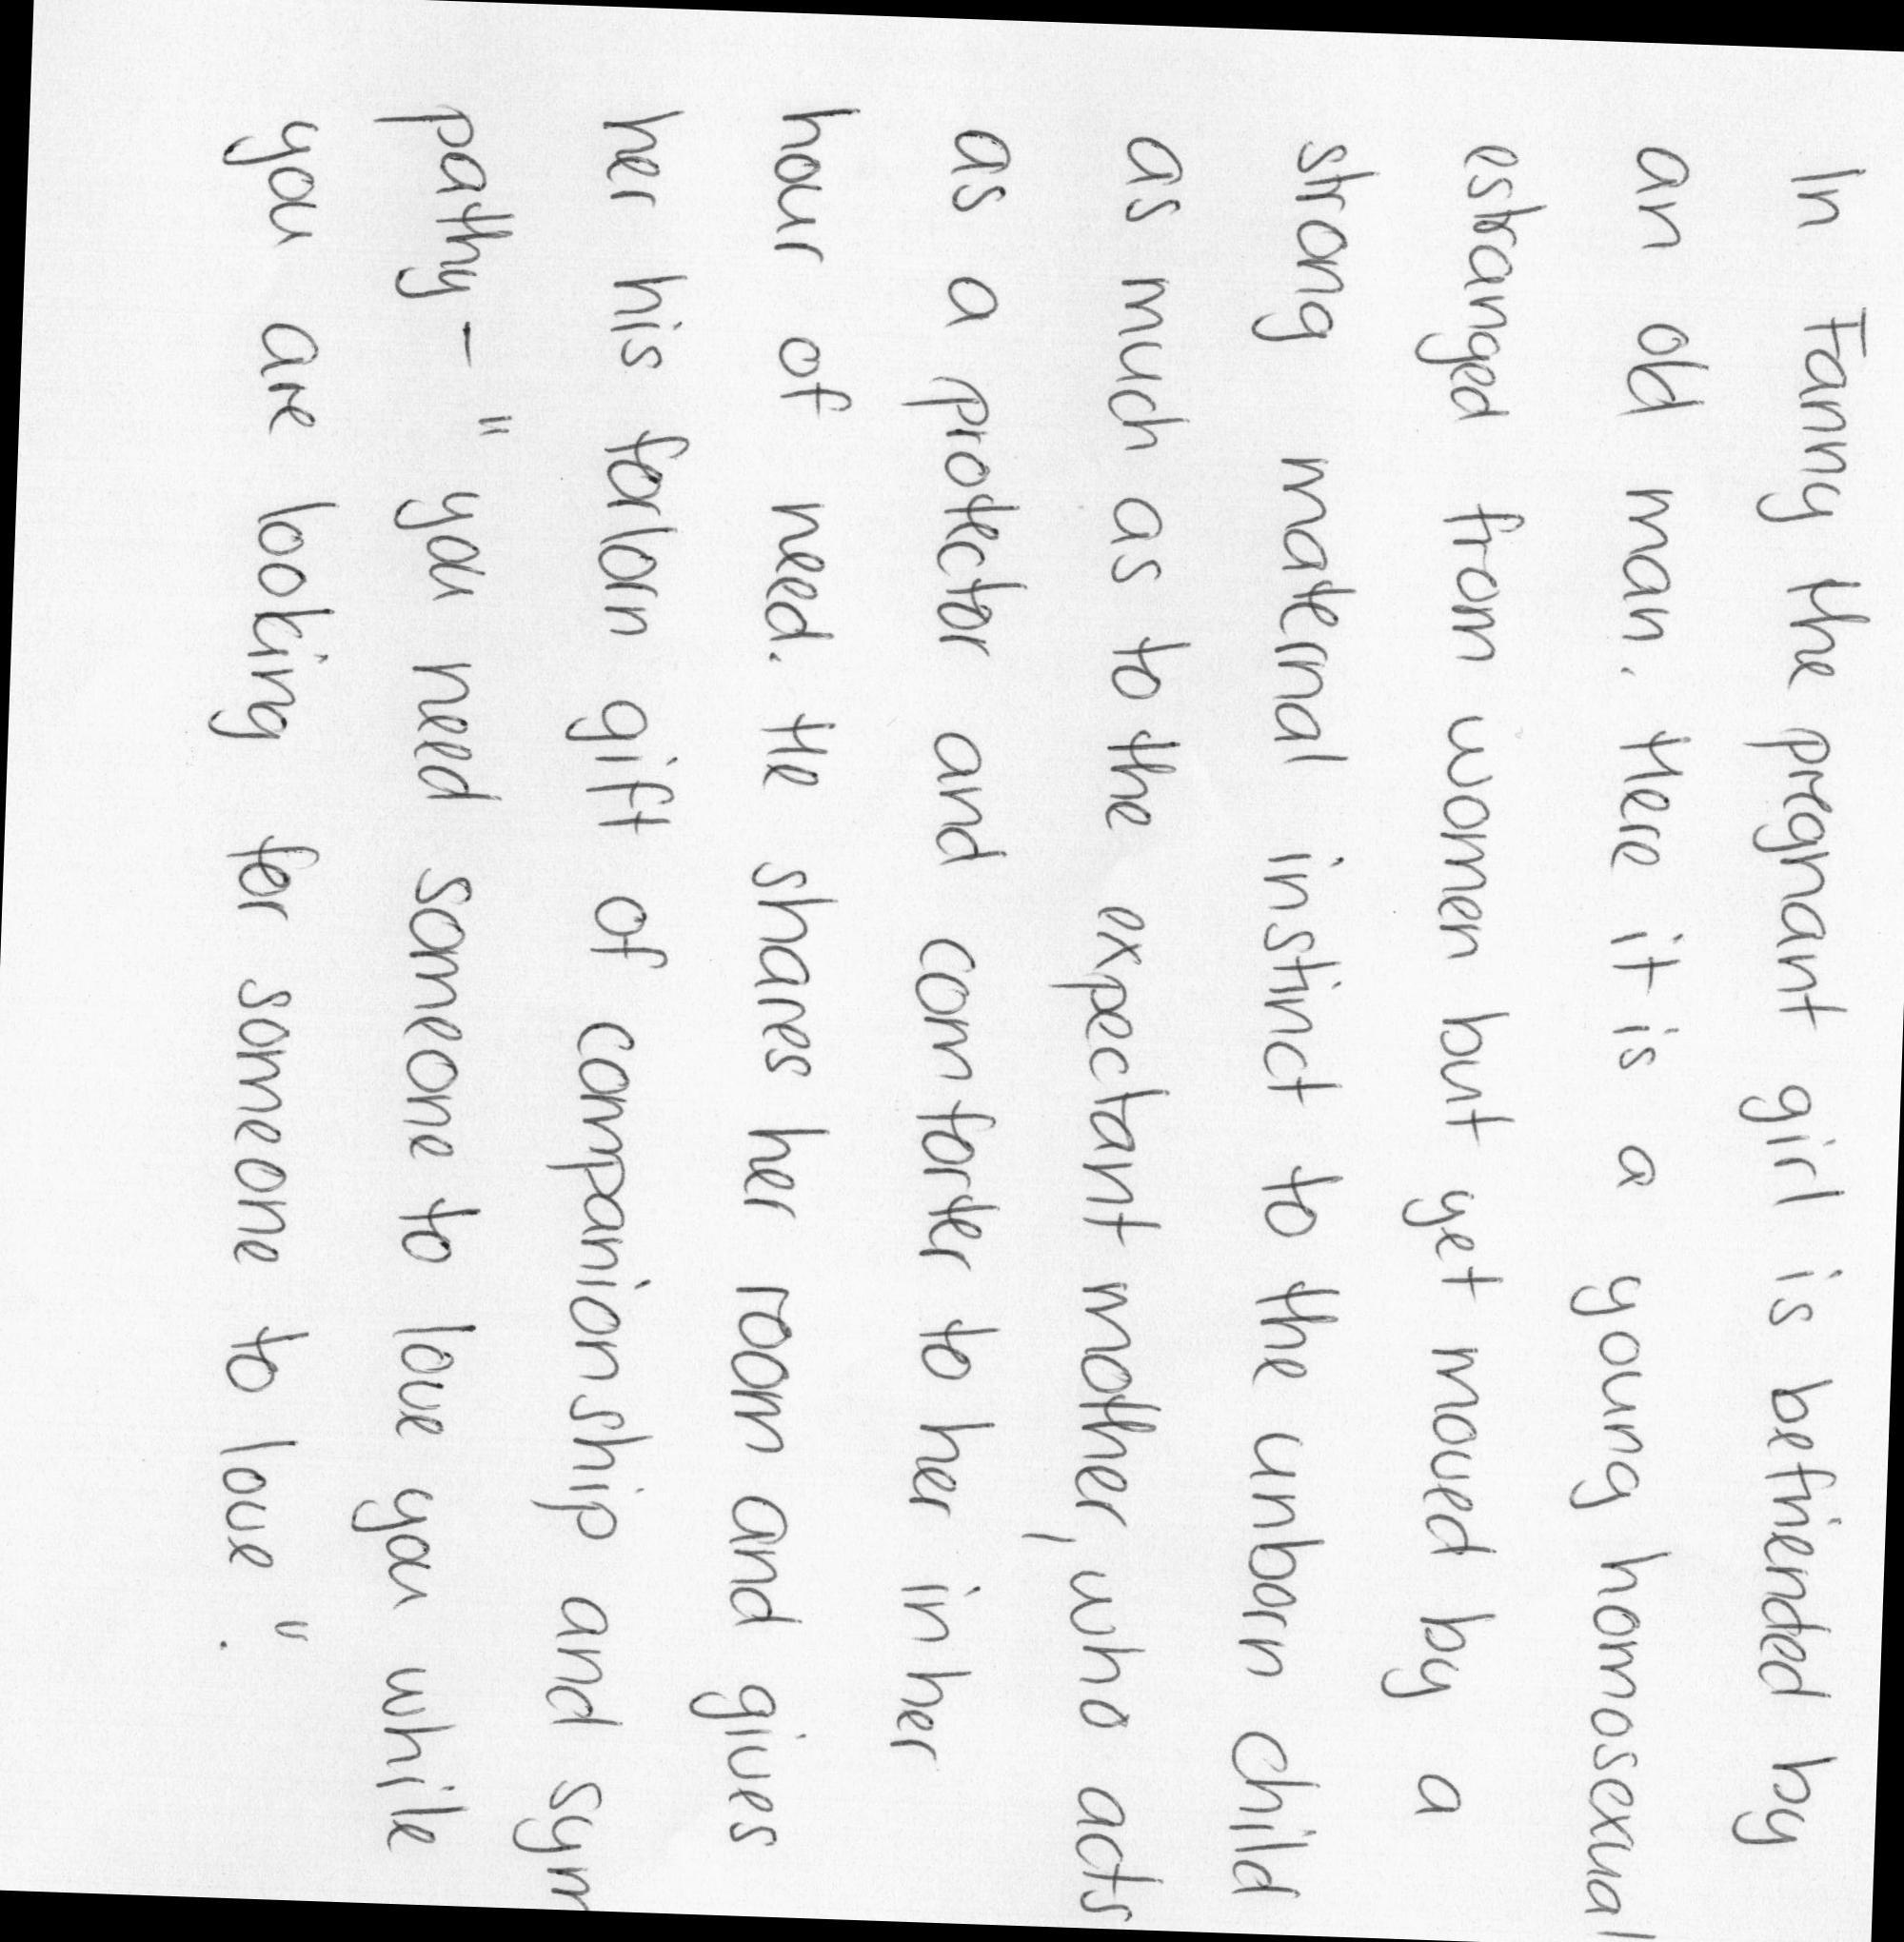 In Fanny the pregnant girl is befriended by
an old man. Here it is a young homosexual
estranged from women but yet moved by a
strong maternal instinct to the unborn child
as much as to the expectant mother, who acts
as a protector and comforter to her in her
hour of need. He shares her room and gives
her his forlorn gift of companionship and sym
pathy - "you need someone to love you while
you are looking for someone to love".